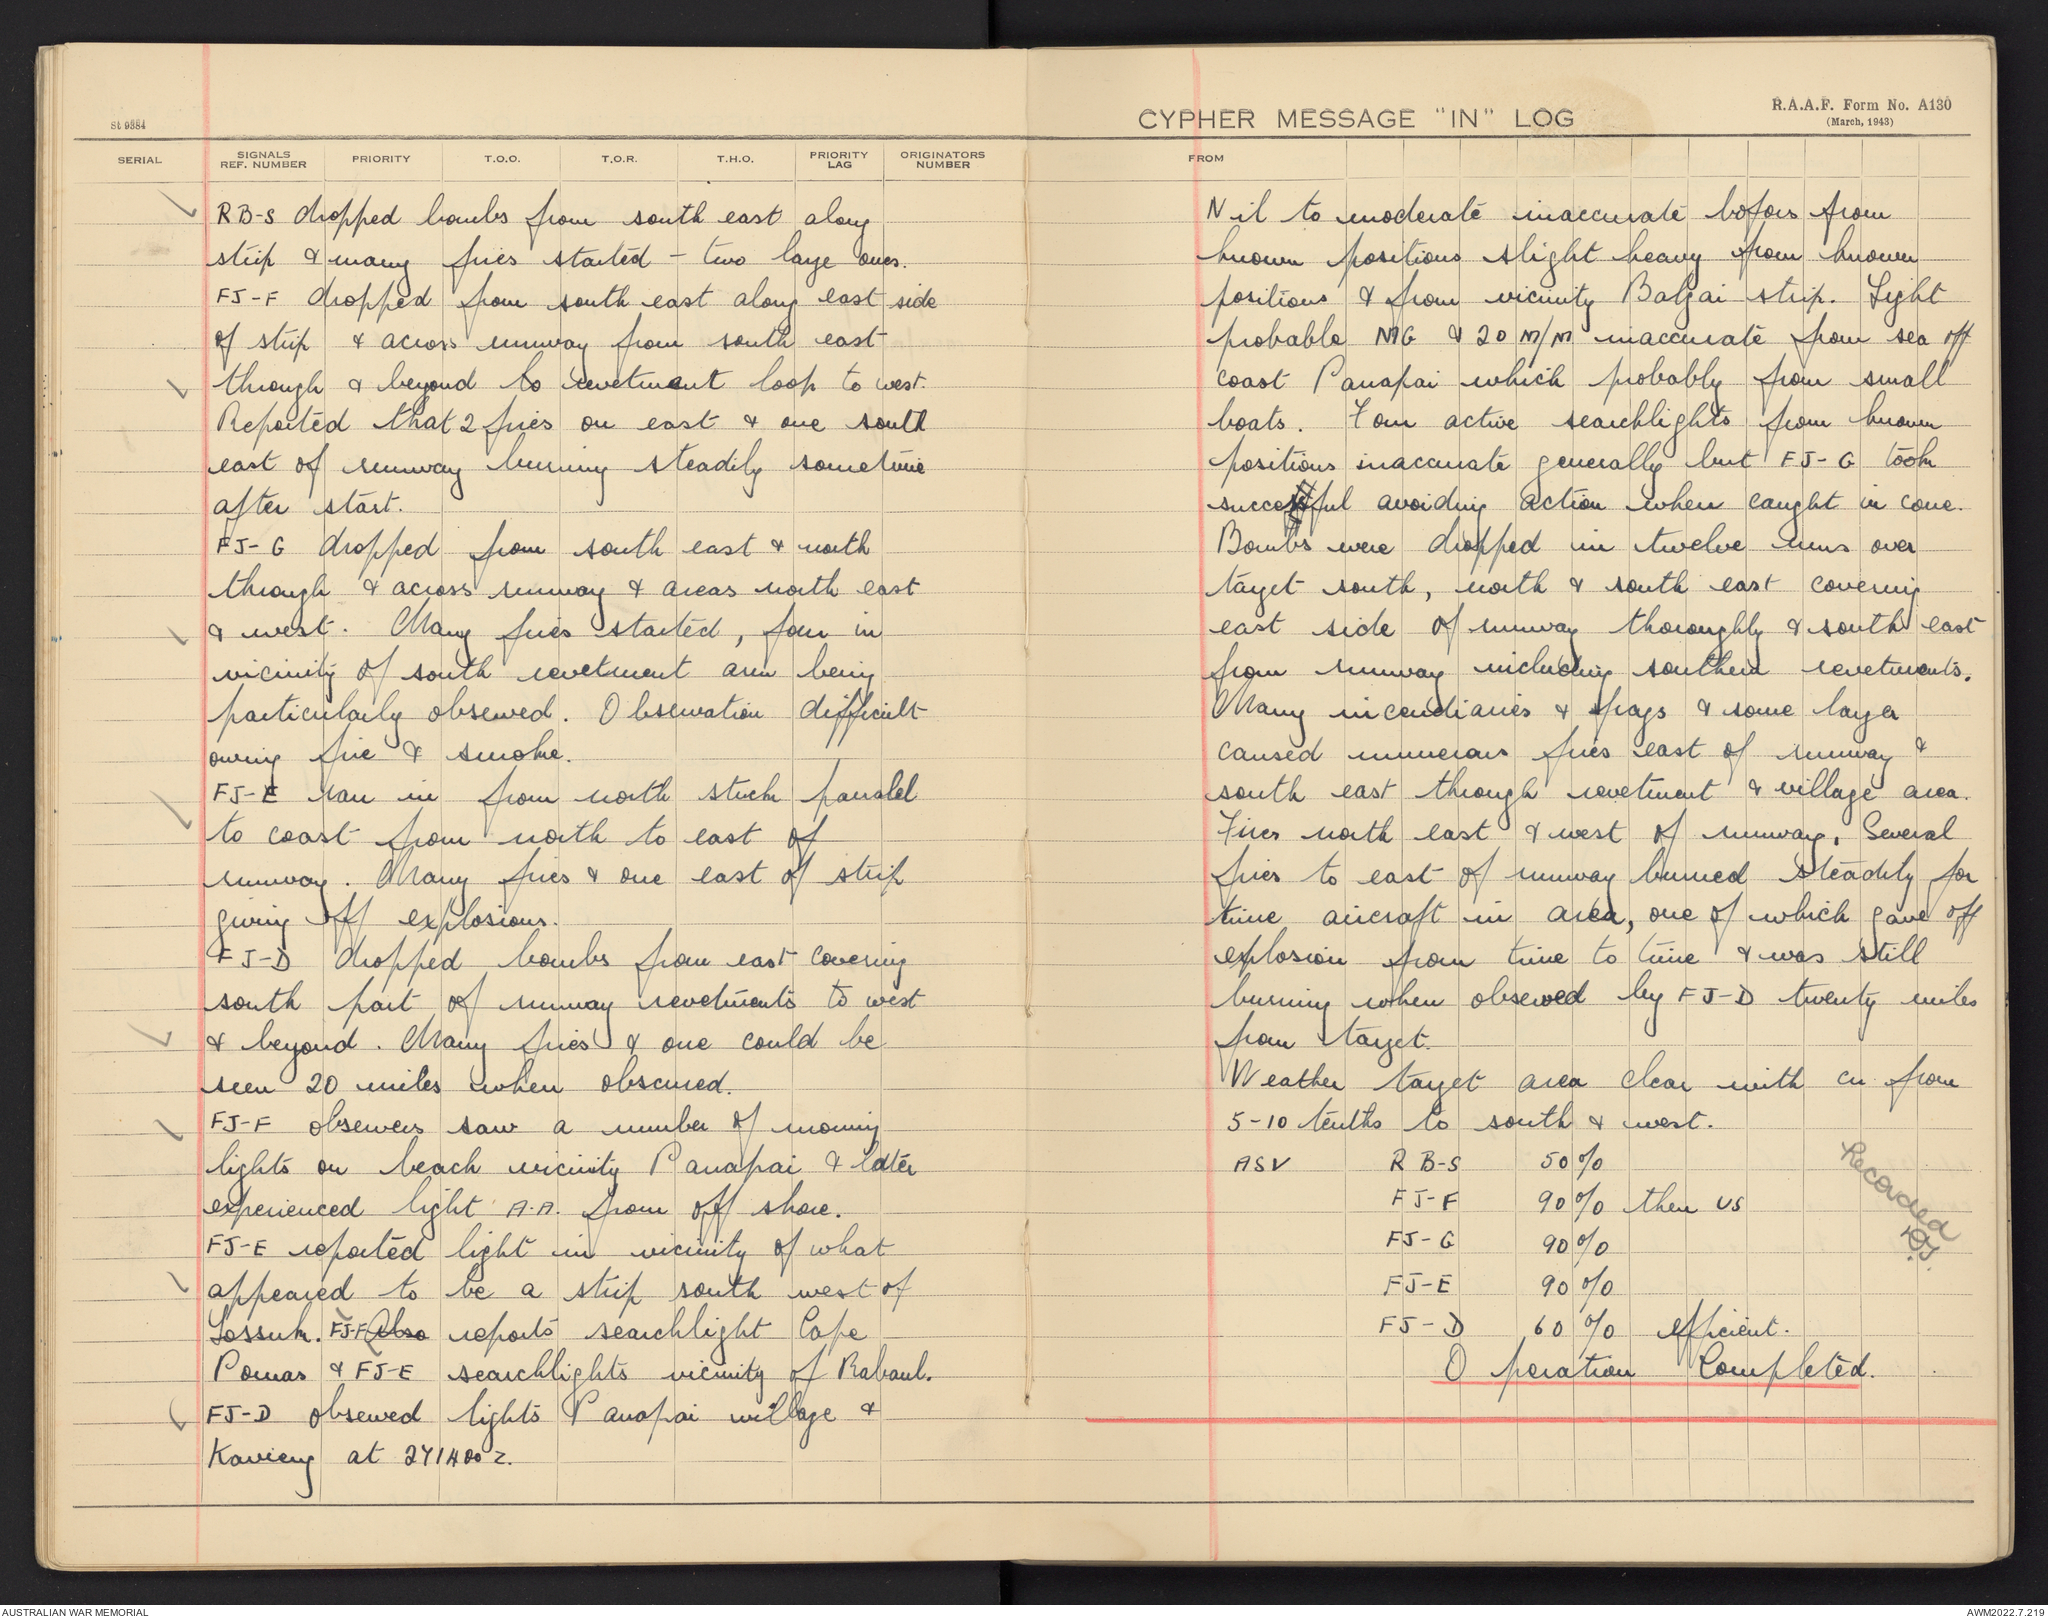 St 9384
SERIAL SIGNALS REF. NUMBER PRIORITY T.O.O. T.O.R. T.H.O. PRIORITY LAG ORIGINATORS NUMBER
RB-S dropped bombs from south east along
strip & many fires started - two large ones.
FJ-F dropped from south east along east side
of strip & across runway from south east
through & beyond to revetment loop to west.
Reported that 2 fires on east & one south
east of runway burning steadily sometime
after start.
FJ-G dropped from south east & north
through & across runway & areas north east
& west. Many fires started, four in
vicinity of south revetment area being
particularly observed. Observation difficult
owing fire & smoke.
FJ-E ran in from north stick parallel
to coast from north to east of
runway. Many fires & one east of strip
giving off explosions.
FJ-D dropped bombs from east covering
south part of runway revetments to west
& beyond. Many fires & one could be
seen 20 miles when obscured.
FJ-F observers saw a number of moving
lights on beach vicinity Panapai & later
experienced light A.A. from off shore.
FJ-E reported light in vicinity of what
appeared to be a strip south west of
Lossuk. FJ-F Also reports searchlight Cape
Pomas & FJ-E searchlights vicinity of Rabaul.
FJ-D observed lights Panapai village &
Kavieng at 271400Z.
CYPHER MESSAGE "IN" LOG
R.A.A.F. Form No. A130
(March, 1943)
FROM
Nil to moderate inaccurate bofors from
known positions slight heavy from known
positions & from vicinity Balgai strip. Light
probable MG & 20 M/M inaccurate from sea off
coast Panapai which probably from small
boats. Four active searchlights from known
positions inaccurate generally but FJ-G took
successful avoiding action when caught in cone.
Bombs were dropped in twelve runs over
target south, north & south east covering
east side of runway thoroughly & south east
from runway including southern revetments.
Many incendiaries & frags & some larger
caused numerous fires east of runway &
south east through revetment & village area.
Fires north east & west of runway. Several
fires to east of runway burned steadily for
time aircraft in area, one of which gave off
explosion from time to time & was still
burning when observed by FJ-D twenty miles
from target.
Weather target area clear with cu from
5-10 tenths to south & west.
ASV RB-S 50%
FJ-F 90% then US
FJ-G 90%
FJ-E 90%
FJ-D 60% efficient.
Operation Completed.
Recorded
AUSTRALIAN WAR MEMORIAL
AWM2022.7.219